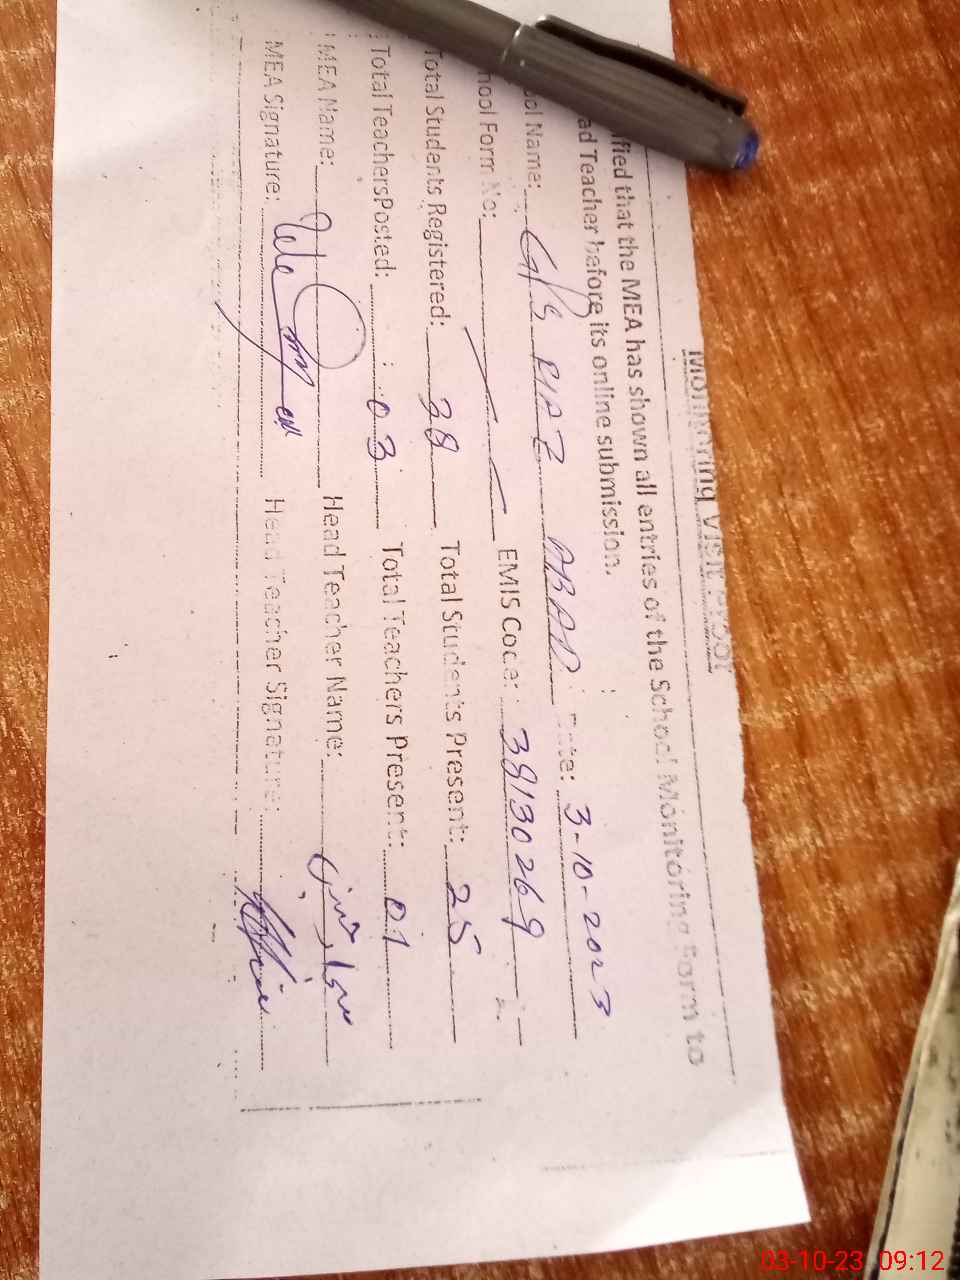 Monitoring Visit Proof
fied that the MEA has shown all entries of the School Monitoring Form to
ad Teacher before its online submission.
ool Name: GPS RIAZ ABAD Date: 3-10-2023
hool Form No: EMIS Code: 38130269
Total Students Registered: 38 Total Students Present: 25
Total Teachers Posted: 03 Total Teachers Present: 01
MEA Name: Head Teacher Name:
MEA Signature: Head Teacher Signature:
03-10-23 09:12